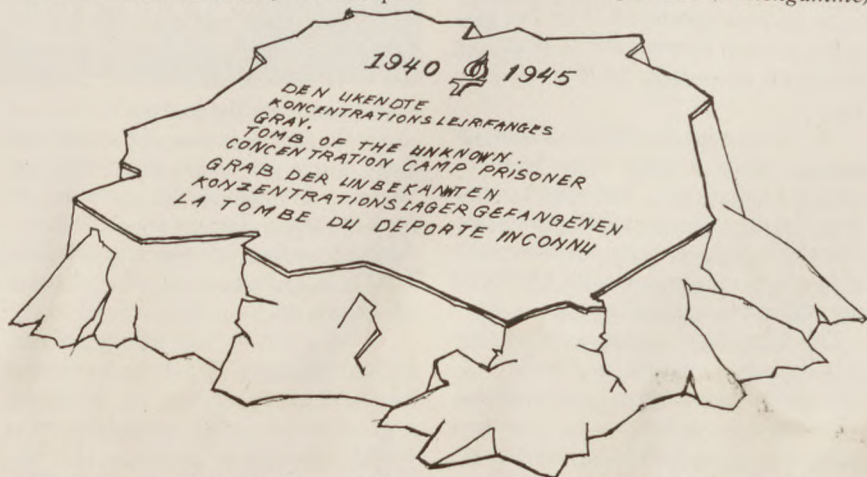 1940 1945
DEN UKENDTE
KONCENTRATIONSLEJRFANGES
GRAV.
TOMB OF THE UNKNOWN.
CONCENTRATION CAMP PRISONER
GRAB DER UNBEKANNTEN
KONZENTRATIONSLAGERGEFANGENEN
LA TOMBE DU DEPORTE INCONNU